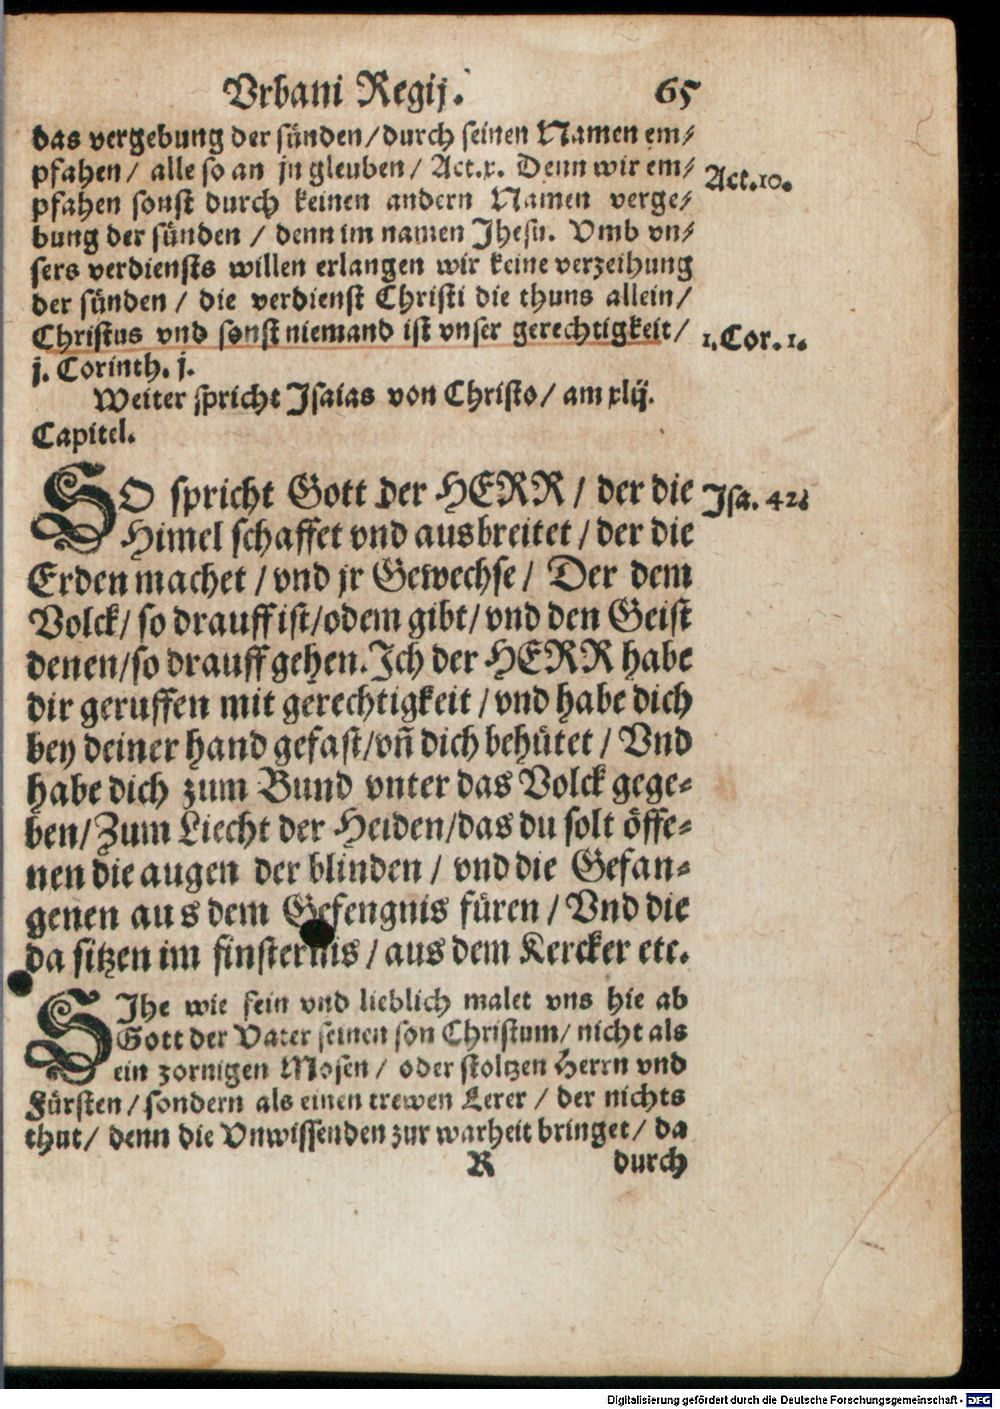 Vrbani Regij. 65
das vergebung der sünden/durch seinen Namen em⸗
pfahen/ alle so an jn gleuben/ Act.x. Denn wir em⸗ Act.10.
pfahen sonst durch keinen andern Namen verge⸗
bung der sünden / denn im namen Jhesu. Vmb vn⸗
sers verdiensts willen erlangen wir keine verzeihung
der sünden / die verdienst Christi die thuns allein/
Christus vnd sonst niemand ist vnser gerechtigkeit/ 1.Cor.1.
j. Corinth. j.
Weiter spricht Isaias von Christo/ am xlij.
Capitel.
SO spricht Gott der HERR / der die Isa. 42.
Himel schaffet vnd ausbreitet / der die
Erden machet / vnd jr Gewechse / Der dem
Volck/ so drauff ist/odem gibt/ vnd den Geist
denen/so drauff gehen. Ich der HERR habe
dir geruffen mit gerechtigkeit / vnd habe dich
bey deiner hand gefast/vñ dich behütet / Vnd
habe dich zum Bund vnter das Volck gege⸗
ben/ Zum Liecht der Heiden/das du solt öffe⸗
nen die augen der blinden / vnd die Gefan⸗
genen aus dem Gefengnis füren / Vnd die
da sitzen im finsternis / aus dem Kercker etc.
SIhe wie fein vnd lieblich malet vns hie ab
Gott der Vater seinen son Christum/ nicht als
ein zornigen Mosen / oder stoltzen Herrn vnd
Fürsten / sondern als einen trewen Lerer / der nichts
thut/ denn die Vnwissenden zur warheit bringet/ da
R durch
Digitalisierung gefördert durch die Deutsche Forschungsgemeinschaft - DFG